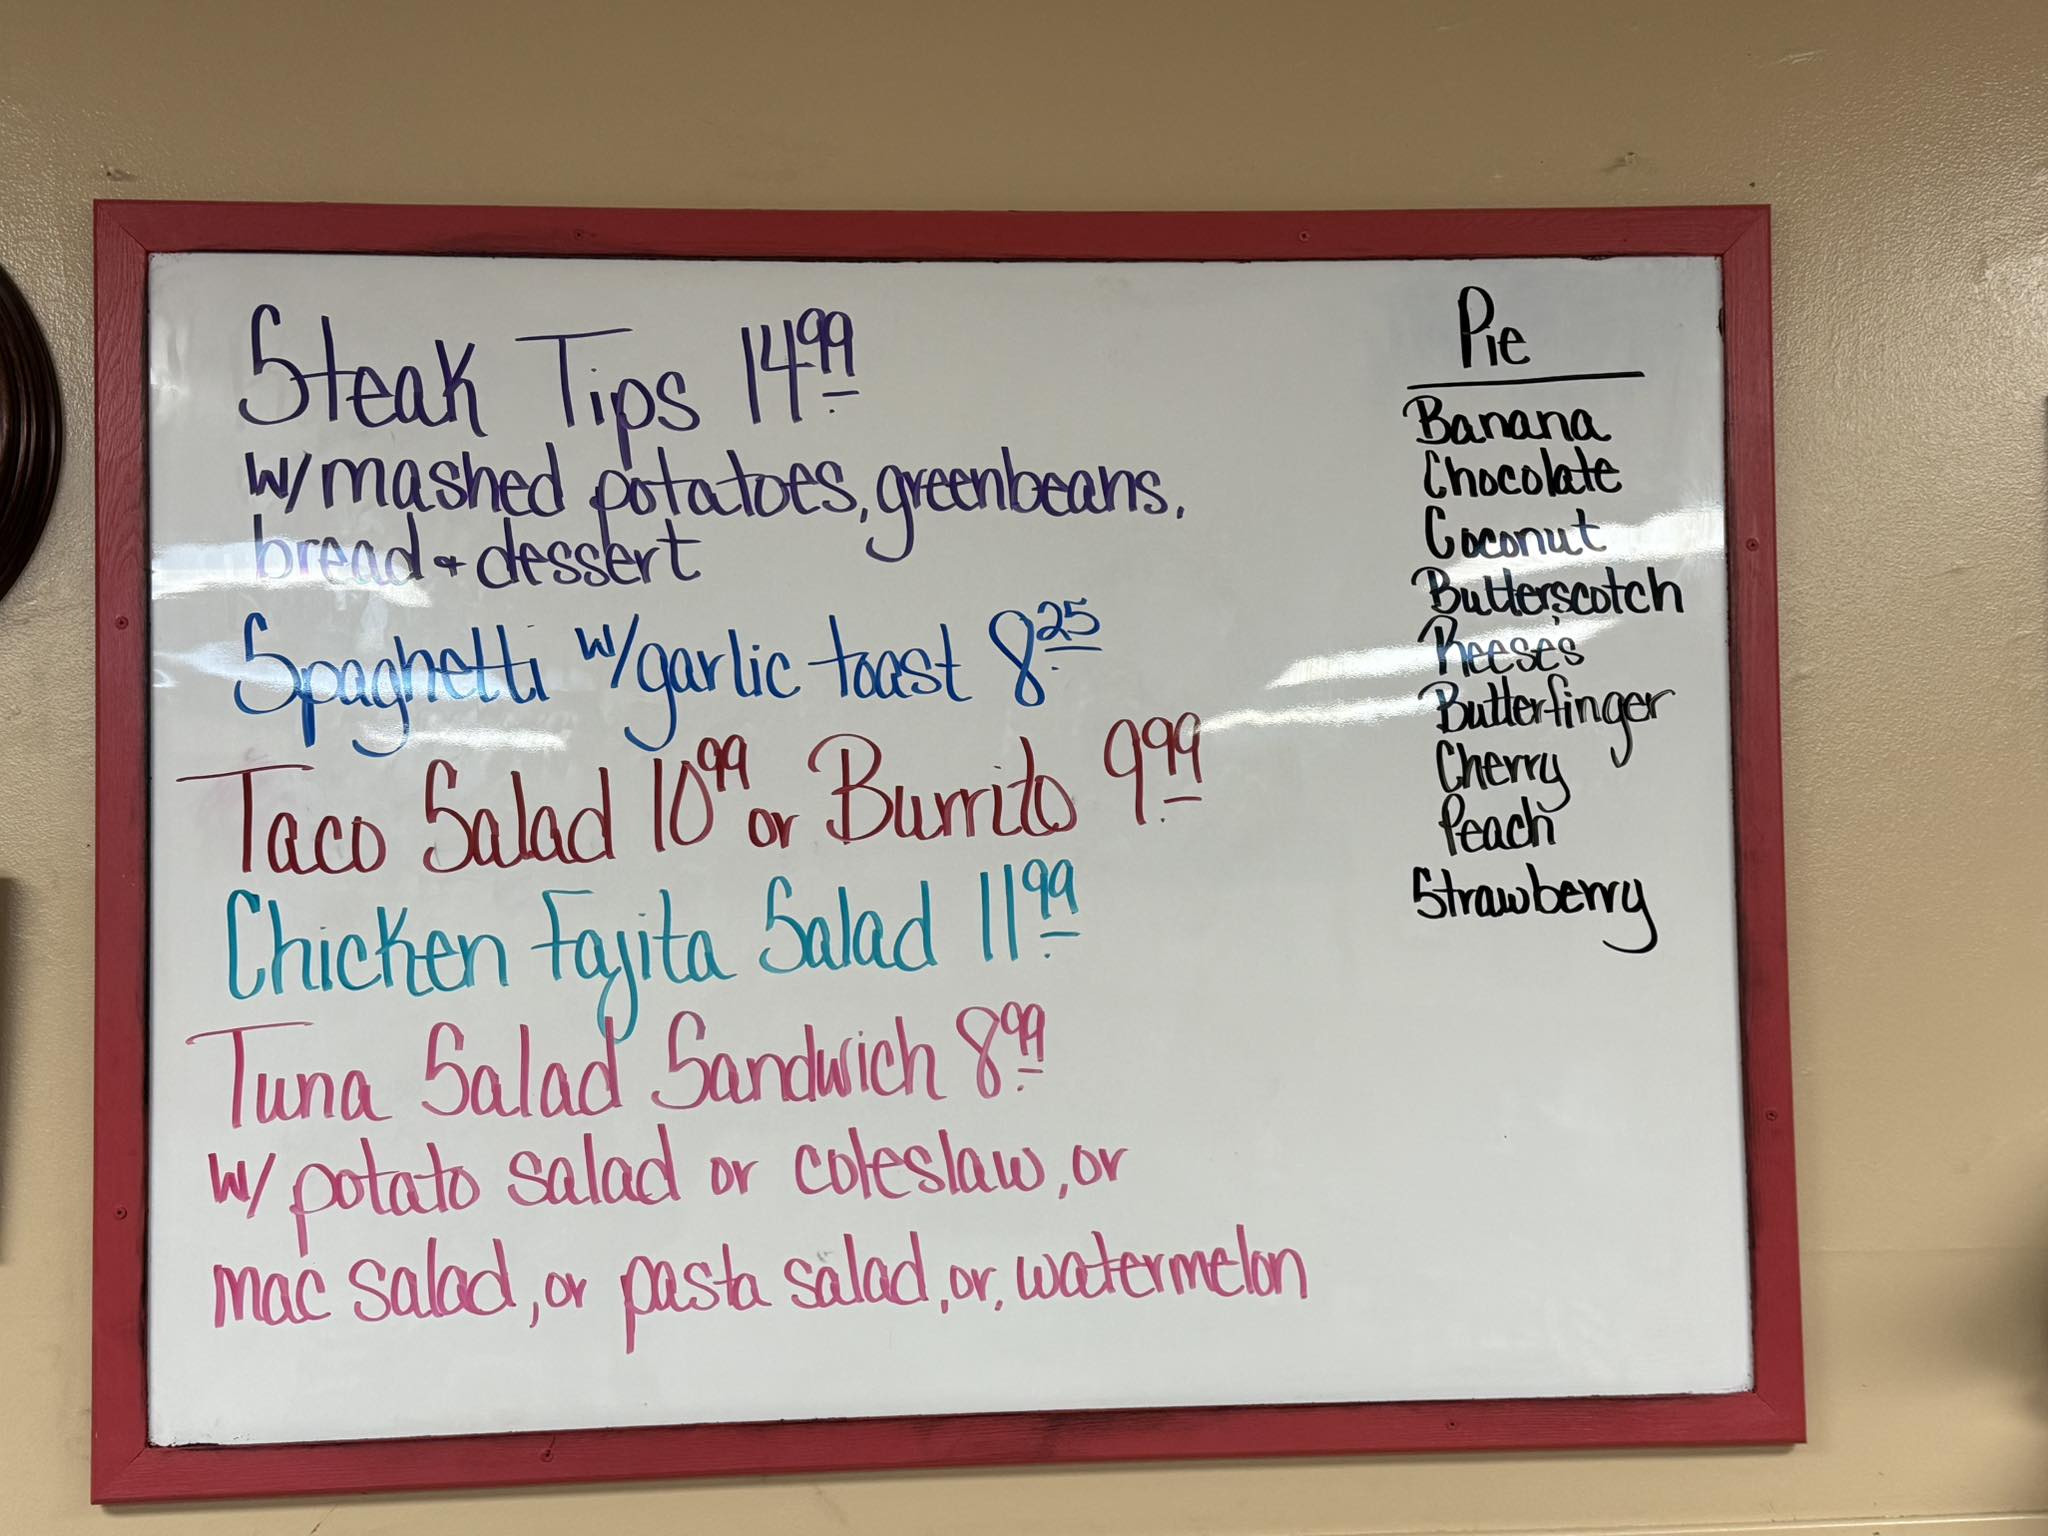 Steak Tips 14.99
w/ mashed potatoes, greenbeans,
bread + dessert
Spaghetti w/ garlic toast 8.25
Taco Salad 10.99 or Burrito 9.99
Chicken Fajita Salad 11.99
Tuna Salad Sandwich 8.99
w/ potato salad or coleslaw, or
mac salad, or pasta salad, or, watermelon
Pie
Banana
Chocolate
Coconut
Butterscotch
Reese's
Butterfinger
Cherry
Peach
Strawberry